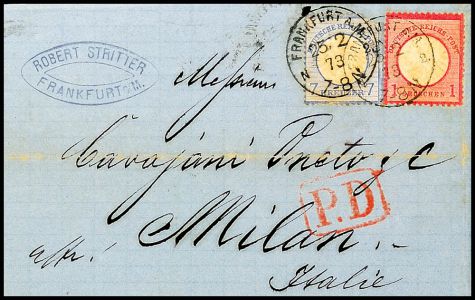 ROBERT STRITTER
FRANKFURT a/M.
FRANKFURT A.M.
26.2
73
7-8N
N
DEUTSCHE REICHS-POST
7 KREUZER 7
DEUTSCHE REICHS-POST
1 GROSCHEN 1
Messieurs
Cavajani Oneto & C
P.D
Milan.-
Italie